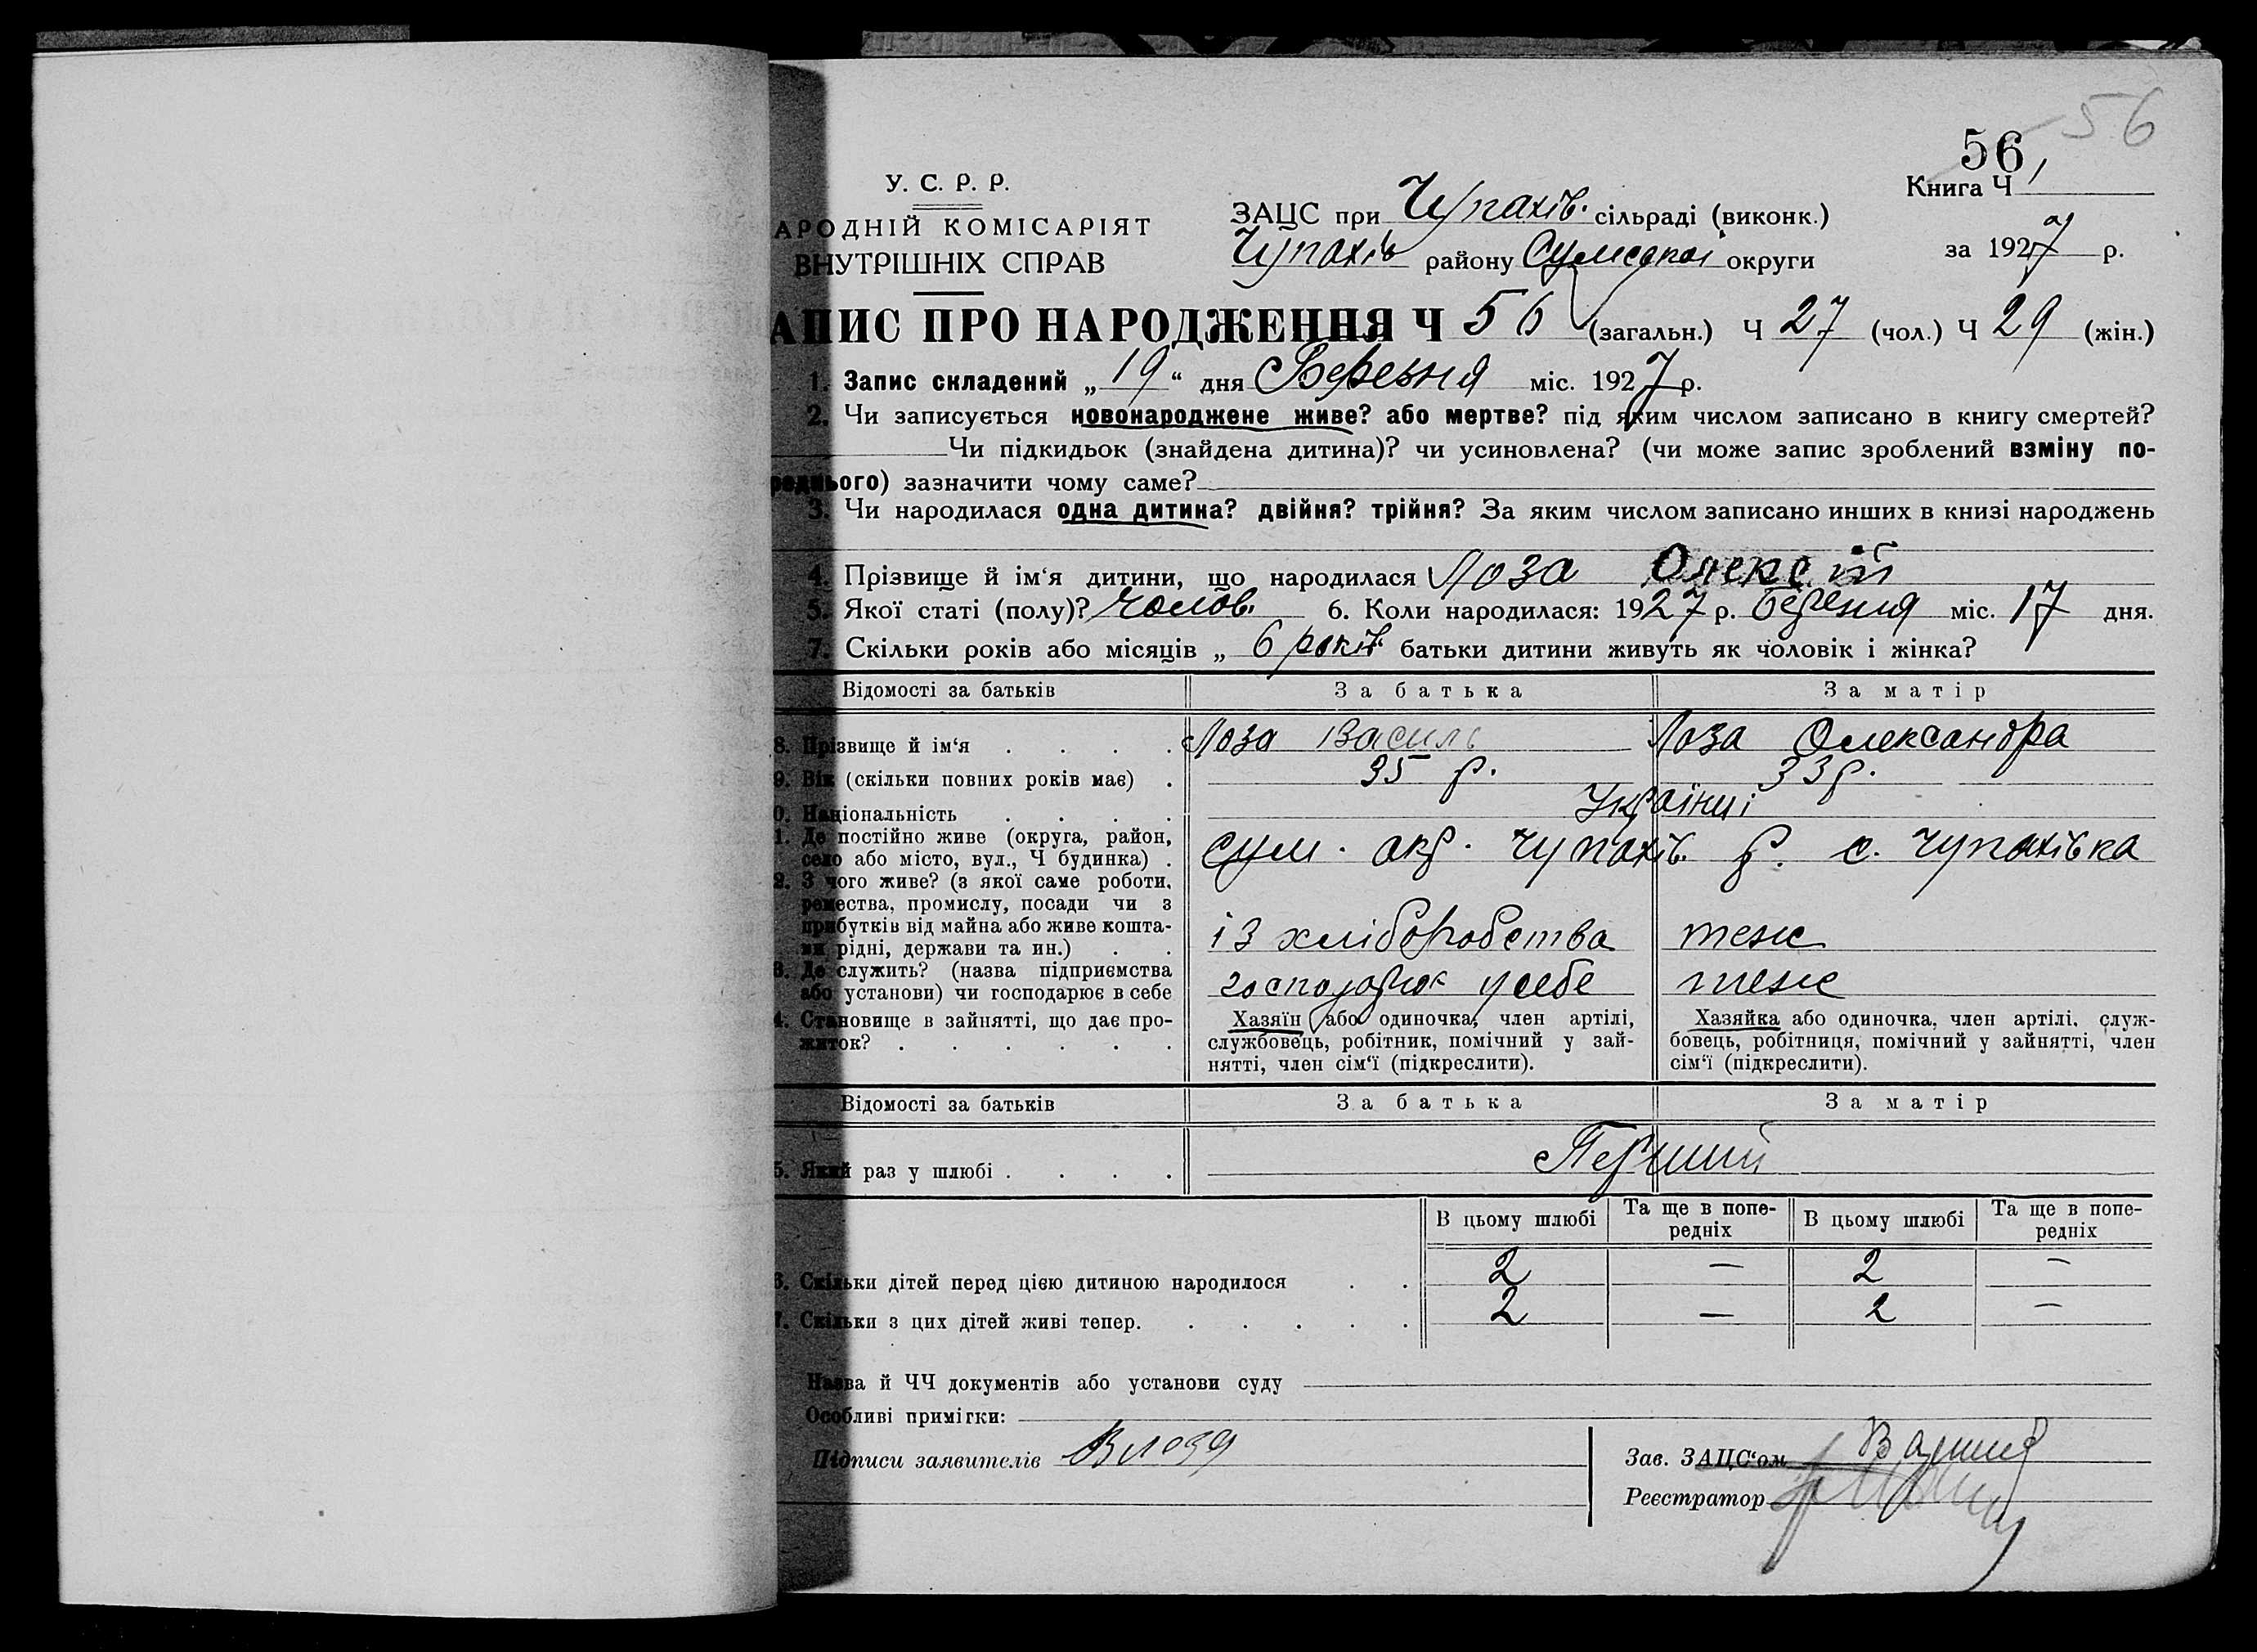 56
56
Книга Ч 1
У. С. Р. Р.
ЗАЦС при Чупахів. сільраді (виконк.)
АРОДНІЙ КОМІСАРІЯТ
ВНУТРІШНІХ СПРАВ
Чупахів району Сумської округи
за 1927 р.
АПИС ПРО НАРОДЖЕННЯ Ч 56 (загальн.) Ч 27 (чол.) Ч 29 (жін.)
1. Запис складений „ 19 “ дня Березня міс. 1927 р.
2. Чи записується новонароджене живе? або мертве? під яким числом записано в книгу смертей?
Чи підкидьок (знайдена дитина)? чи усиновлена? (чи може запис зроблений взміну по-
реднього) зазначити чому саме?
3. Чи народилася одна дитина? двійня? трійня? За яким числом записано инших в книзі народжень
4. Прізвище й ім‘я дитини, що народилася Лоза Олексій
5. Якої статі (полу)? чолов. 6. Коли народилася: 1927 р. березня міс. 17 дня.
7. Скільки років або місяців „ 6 років батьки дитини живуть як чоловік і жінка?
Відомості за батьків За батька За матір
8. Прізвище й ім‘я . . . . Лоза Василь Лоза Олександра
9. Вік (скільки повних років має) . 35 р. 33 р.
0. Національність . . . . Українці
1. Де постійно живе (округа, район,
село або місто, вул., Ч будинка) . Сум. окр. Чупахів. р. с. Чупахівка
2. З чого живе? (з якої саме роботи,
ремества, промислу, посади чи з
прибутків від майна або живе кошта-
ми рідні, держави та ин.) . . із хліборобства теж
3. Де служить? (назва підприємства
або установи) чи господарює в себе господарює у себе теж
4. Становище в зайнятті, що дає про-
житок? . . . . . .
Хазяїн або одиночка, член артілі,
службовець, робітник, помічний у зай-
нятті, член сім‘ї (підкреслити).
Хазяйка або одиночка, член артілі, служ-
бовець, робітниця, помічний у зайнятті, член
сім‘ї (підкреслити).
Відомості за батьків За батька За матір
5. Який раз у шлюбі . . . . Перший
В цьому шлюбі Та ще в попе-
редніх В цьому шлюбі Та ще в попе-
редніх
6. Скільки дітей перед цією дитиною народилося . . 2 — 2 —
7. Скільки з цих дітей живі тепер. . . . . . 2 — 2 —
Назва й ЧЧ документів або установи суду
Особливі примітки:
Підписи заявителів В Лоза
Зав. ЗАЦС‘ом
Реєстратор